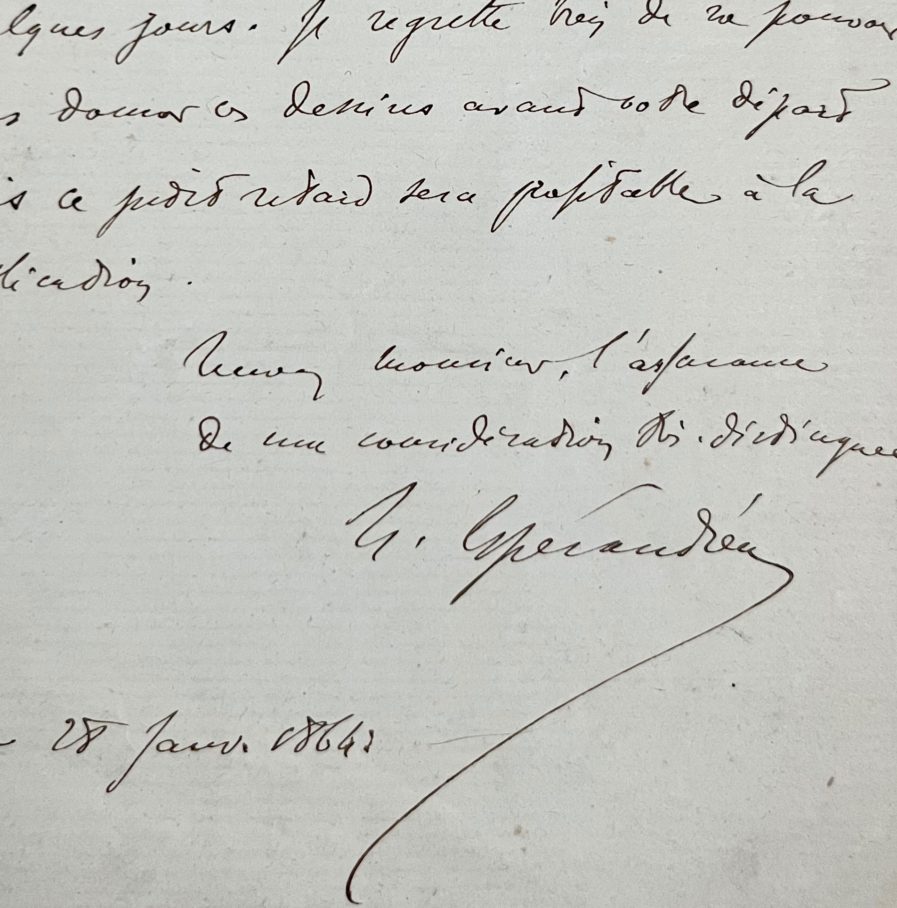 lques jours. Je regrette bien de ne pouvoir
s donner ces dessins avant votre départ
is ce petit retard sera profitable à la
lication.
Recevez monsieur, l'assurance
de ma considération très distinguée
H. Espérandieu
28 Janv. 1864.